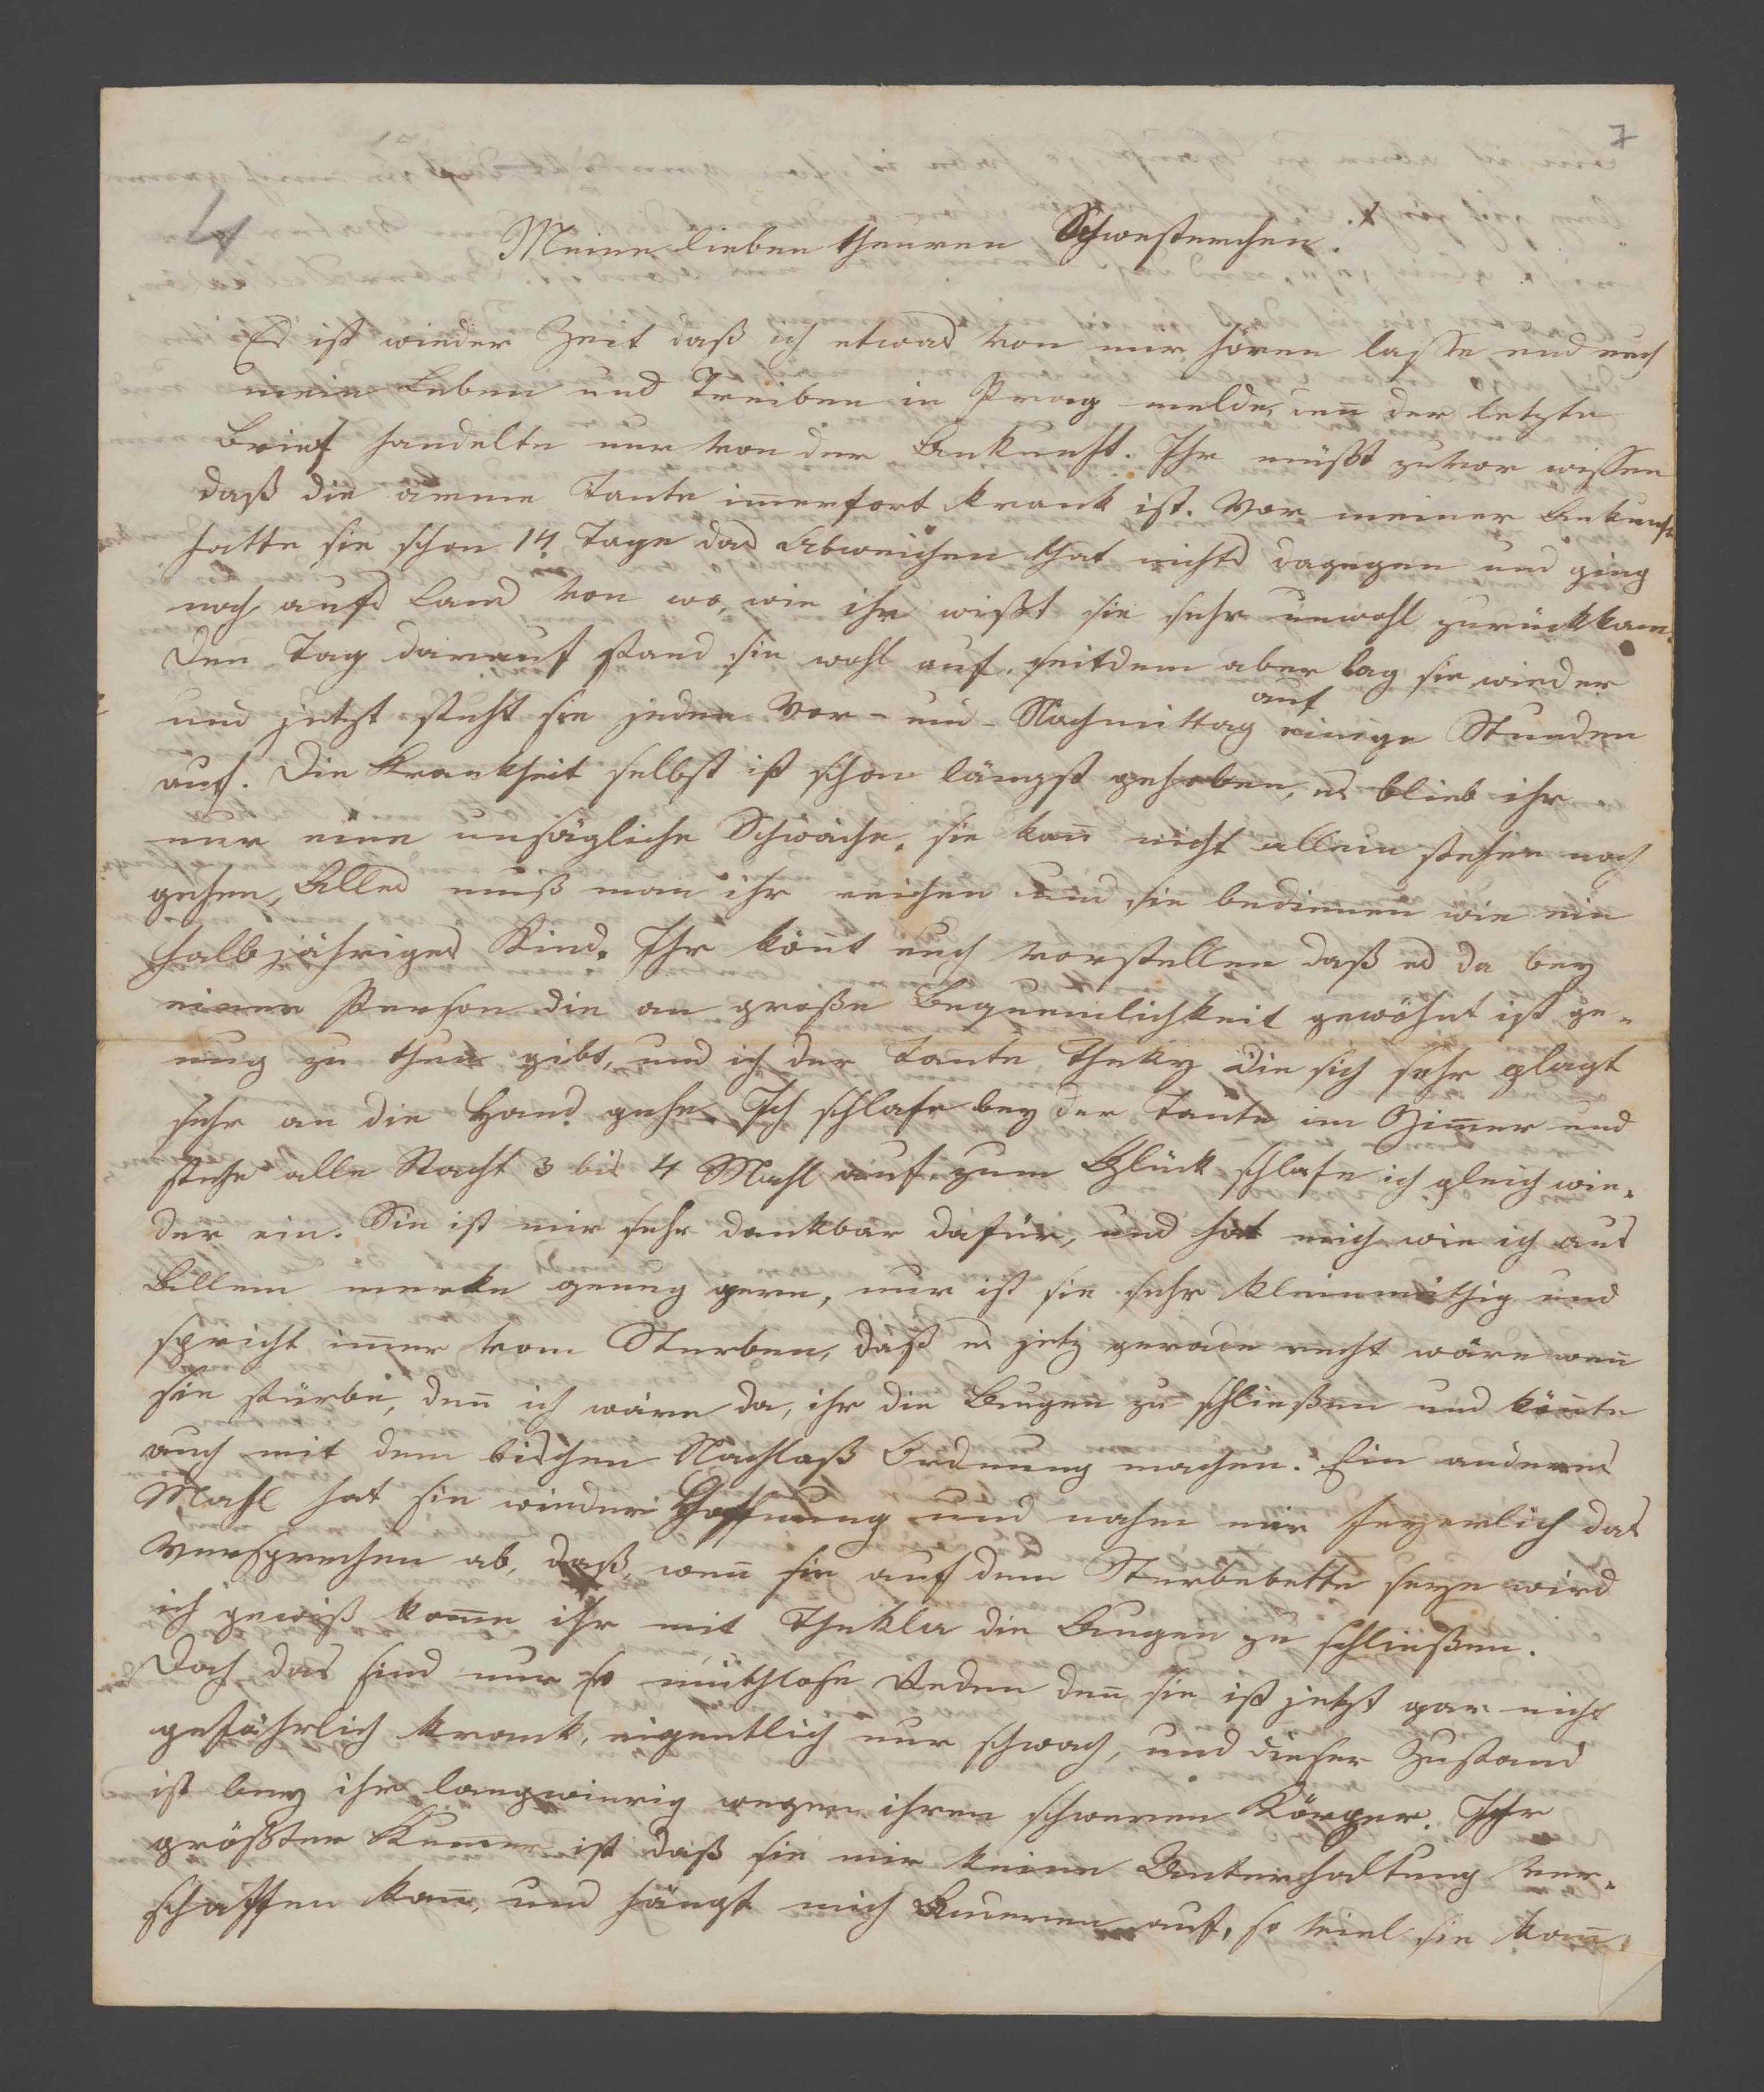 7
4
Meine lieben theuren Schwesterchen!
Es ist wieder Zeit daß ich etwas von mir hören lasse und euch
mein Leben und Treiben in Prag melde, den̄ der letzte
Brief handelte nur von der Ankunft. Ihr müßt zuvor wissen
daß die arme Tante im̄erfort krank ist. Vor meiner Ankunft
hatte sie schon 14 Tage das Abweichen that nichts dagegen und ging
noch aufs Land von wo, wie ihr wißt sie sehr unwohl zurückkam.
Den Tag darauf stand sie wohl auf, seitdem aber lag sie wieder
und jetzt steht sie jeden Vor- und Nachmittag auf einige Stunden
auf. Die Krankheit selbst ist schon längst gehoben, es blieb ihr
nur eine unsägliche Schwäche, sie kan̄ nicht allein stehen noch
gehen, Alles muß man ihr reichen und sie bedienen wie ein
halbjähriges Kind. Ihr kön̄t euch vorstellen daß es da bey
einer Person die an große Bequemlichkeit gewöhnt ist ge-
nug zu thun gibt, und ich der Tante Theky die sich sehr plagt
sehr an die Hand gehe. Ich schlafe bey der Tante im Zim̄er und
stehe alle Nacht 3 bis 4 Mahl auf zum Glück schlafe ich gleich wie-
der ein. Sie ist mir sehr dankbar dafür, und hat mich wie ich aus
Allem merke genug gern, nur ist sie sehr kleinmüthig und
spricht im̄er vom Sterben, daß es jetz gerade recht wäre wen̄
sie stürbe, den̄ ich wäre da, ihr die Augen zu schließen und kön̄te
auch mit dem bischen Nachlaß Ordnung machen. Ein anderes
Mahl hat sie wieder Hoffnung und nahm mir feyerlich das
Versprechen ab, daß, wen̄ sie auf dem Sterbebette seyn wird
ich gewiß kom̄e ihr mit Thekla die Augen zu schließen.
Doch das sind nur so muthlose Reden den̄ sie ist jetzt gar nicht
gefährlich krank, eigentlich nur schwach, und dieser Zustand
ist bey ihr langwierig wegen ihren schweren Körper. Ihr
größter Kum̄er ist daß sie mir keine Unterhaltung ver-
schaffen kan̄, und hängt mich Anderen auf, so viel sie kan̄,